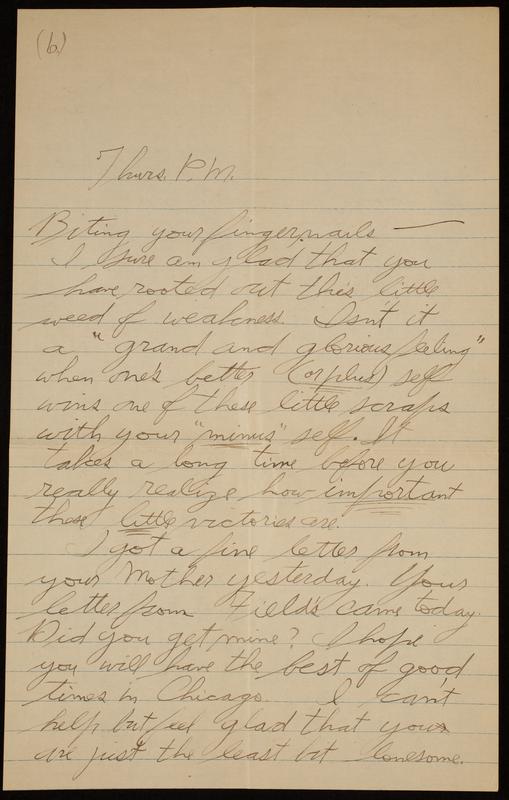 (6.)
Thurs. P.M.
Biting your fingernails —
I sure am glad that you
have rooted out this little
weed of weakness. Isn't it
a "grand and glorious feeling"
when one's better (or plus) self
wins one of these little scraps
with your "minus" self. It
takes a long time before you
really realize how important
these little victories are.
I got a fine letter from
your Mother yesterday. Your
letter from Field's came today.
Did you get mine? I hope
you will have the best of good
times in Chicago. I can't
help but feel glad that you
are just the least bit lonesome.